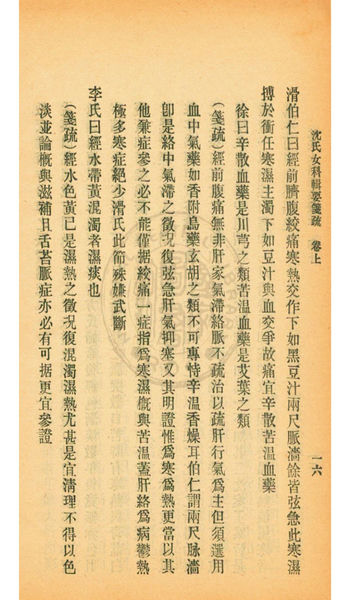 沈氏女科輯要箋疏 卷上
一六
滑伯仁曰經前臍腹絞痛寒熱交作下如黑豆汁兩尺脈濇餘皆弦急此寒濕
搏於衝任寒濕主濁下如豆汁與血交爭故痛宜辛散苦温血藥
徐曰辛散血藥是川芎之類苦温血藥是艾葉之類
(箋疏)經前腹痛無非肝家氣滯絡脈不疏治以疏肝行氣爲主但須選用
血中氣藥如香附烏藥玄胡之類不可專恃辛温香燥耳伯仁謂兩尺脉濇
卽是絡中氣滯之徵况復弦急肝氣抑塞又其明證惟爲寒爲熱更當以其
他兼症參之必不能僅據絞痛一症指爲寒濕概與苦温蓋肝絡爲病鬱熱
極多寒症絕少滑氏此節殊嫌武斷
李氏曰經水帶黃混濁者濕痰也
(箋疏)經水色黃已是濕熱之徵况復混濁濕熱尤甚是宜淸理不得以色
淡並論概與滋補且舌苔脈症亦必有可据更宜參證